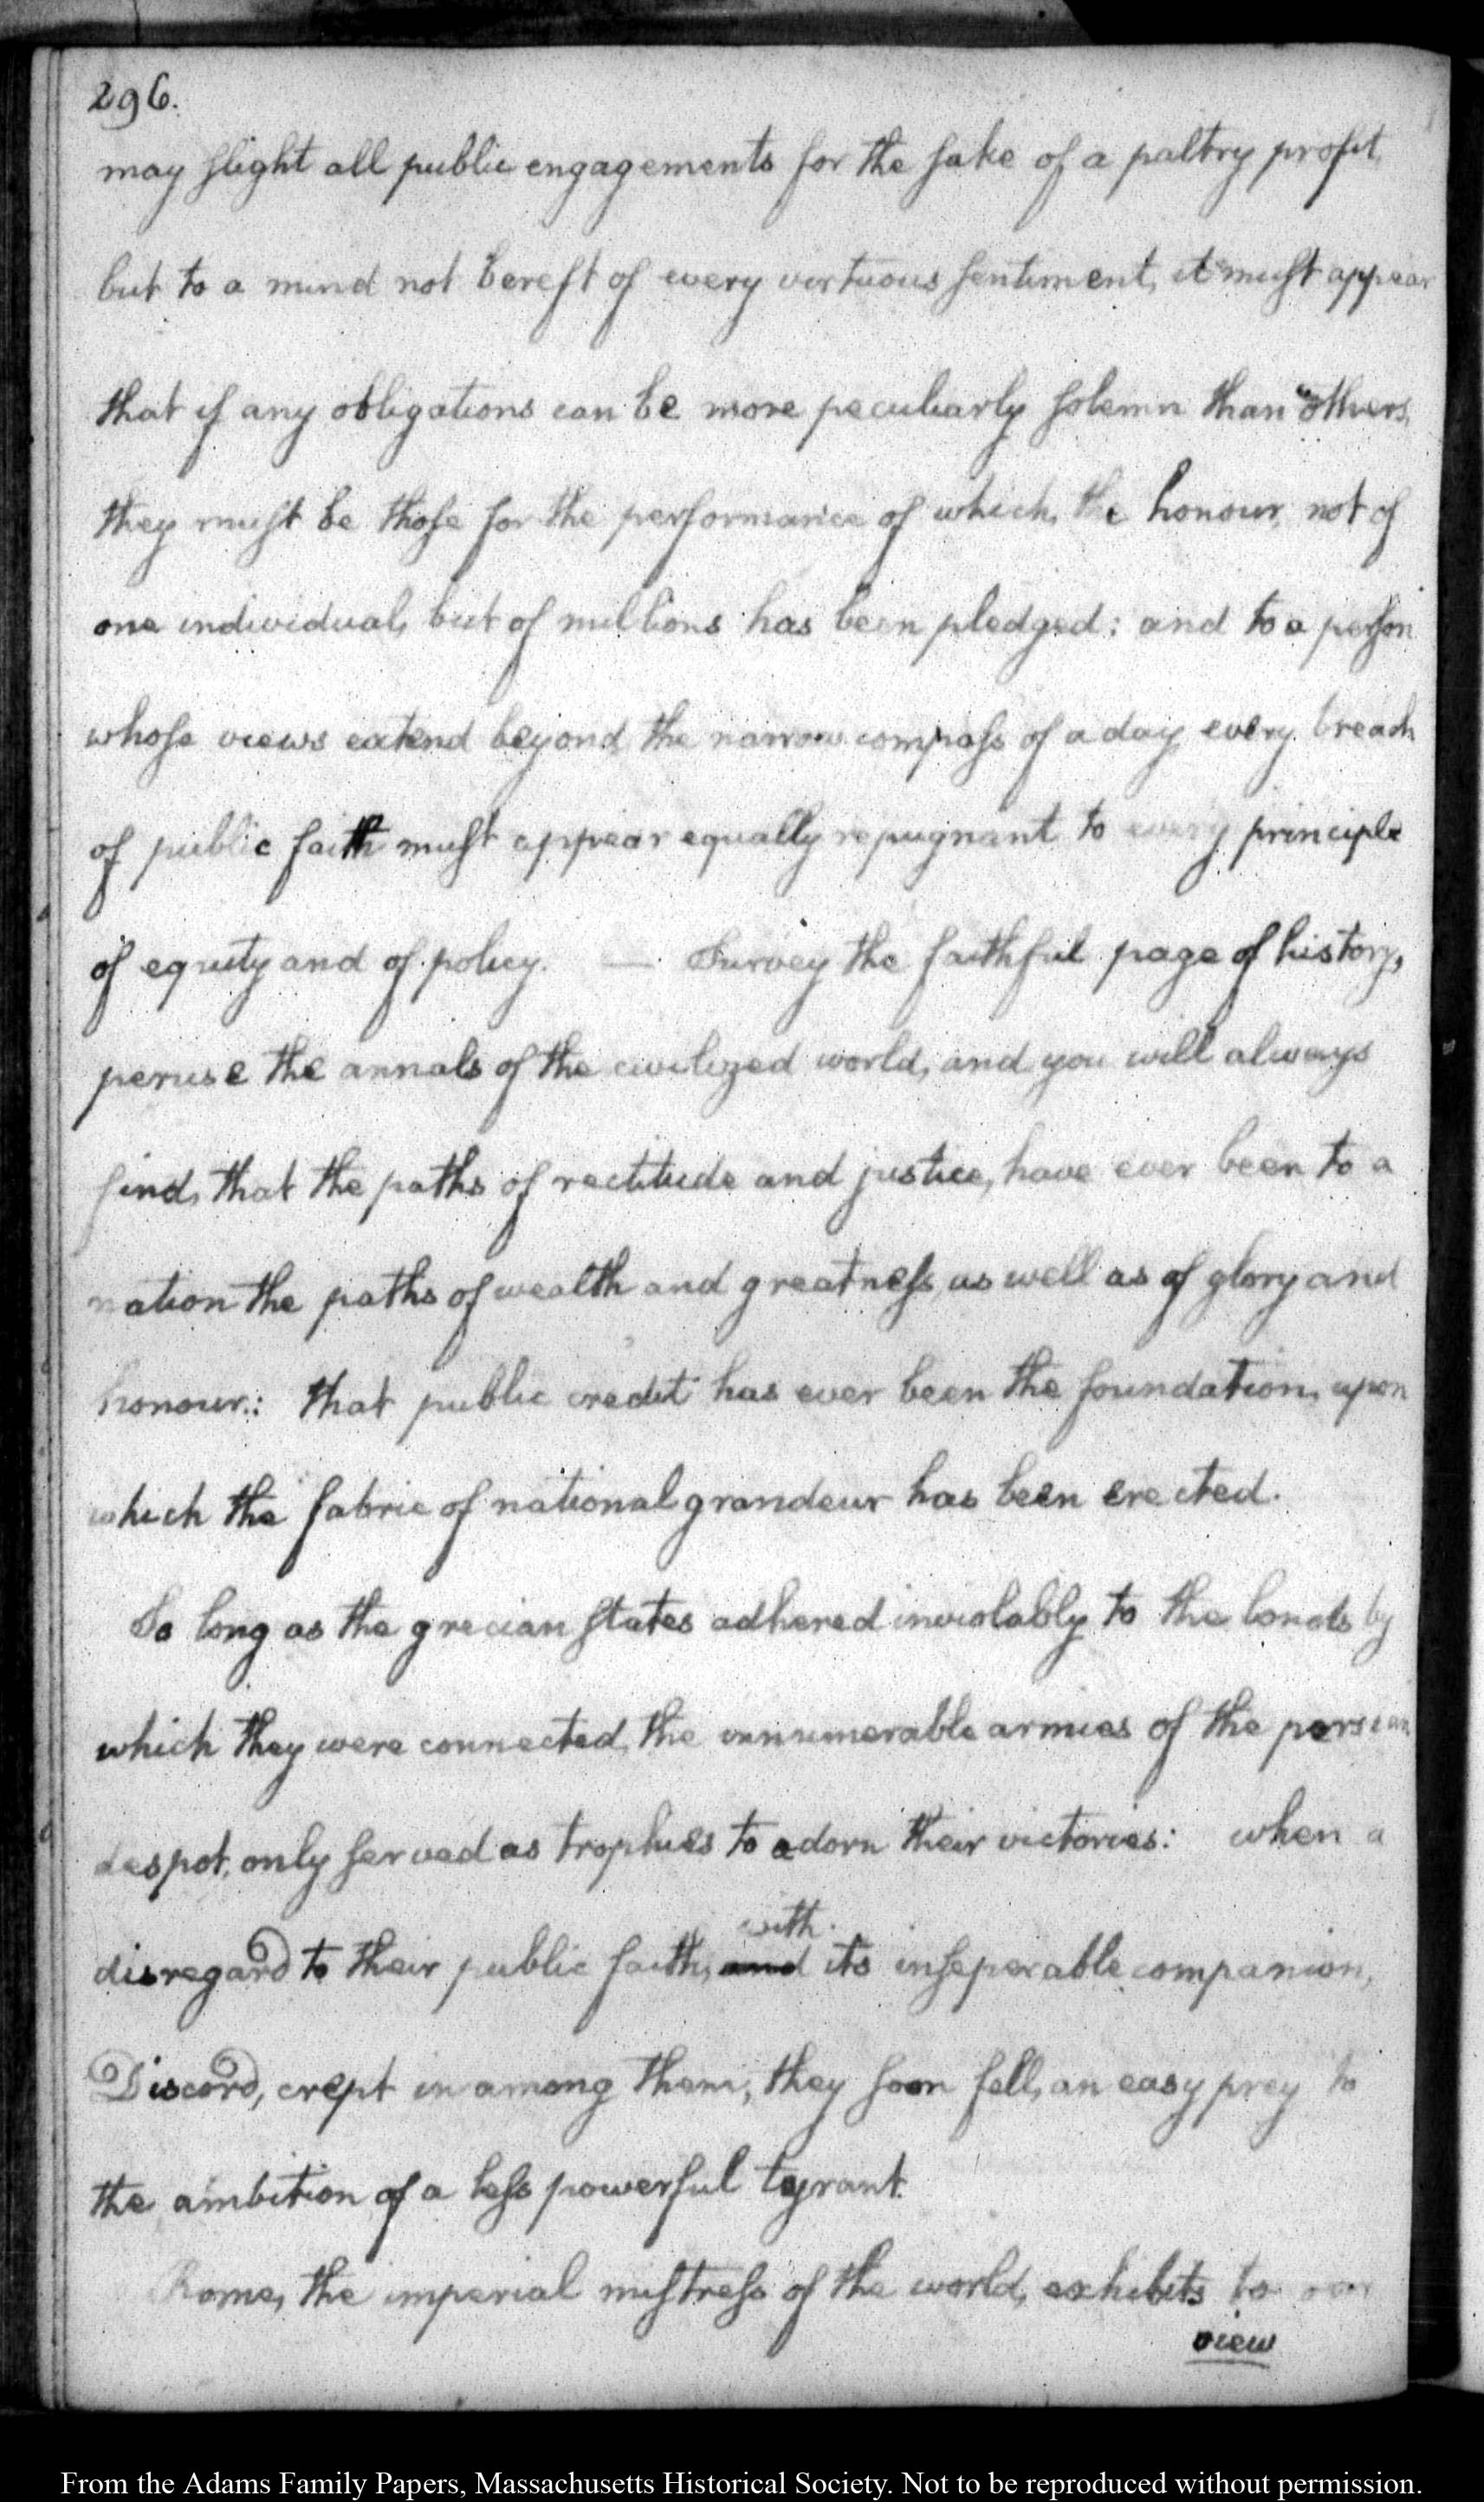 296.
may slight all public engagements for the sake of a paltry profit,
but to a mind not bereft of every virtuous sentiment, it must appear
that if any obligations can be more peculiarly solemn than others,
they must be those for the performance of which, the honour, not of
one individual, but of millions has been pledged: and to a person
whose views extend beyond the narrow compass of a day, every breach
of public faith must appear equally repugnant to every principle
of equity and of policy. — Survey the faithful page of history,
peruse the annals of the civilized world, and you will always
find, that the paths of rectitude and justice, have ever been to a
nation the paths of wealth and greatness, as well as of glory and
honour: that public credit has ever been the foundation, upon
which the fabric of national grandeur has been erected.
So long as the grecian states adhered inviolably to the bonds by
which they were connected, the innumerable armies of the persian
despot, only served as trophies to adorn their victories: when a
with
disregard to their public faith, and its inseperable companion,
Discord, crept in among them, they soon fell, an easy prey to
the ambition of a less powerful tyrant.
Rome, the imperial mistress of the world, exhibits to our
view
From the Adams Family Papers, Massachusetts Historical Society. Not to be reproduced without permission.